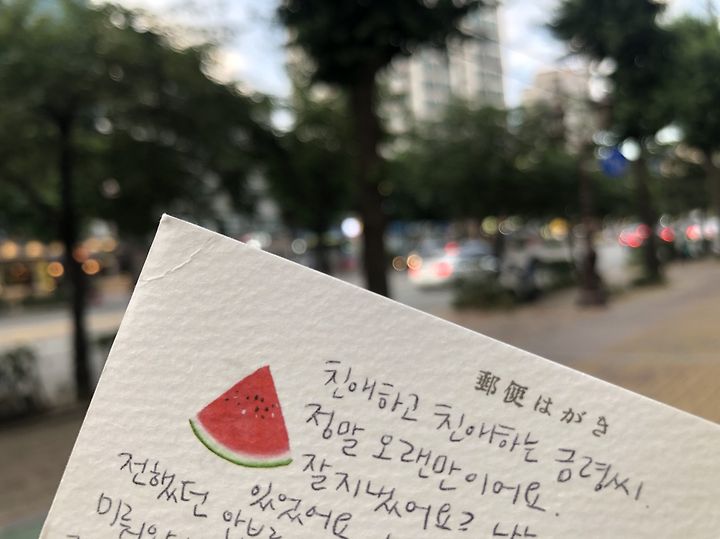 郵便はがき
친애하고 친애하는 금령씨
정말 오랜만이어요.
잘지냈어요?
전했던
있었어요
미루